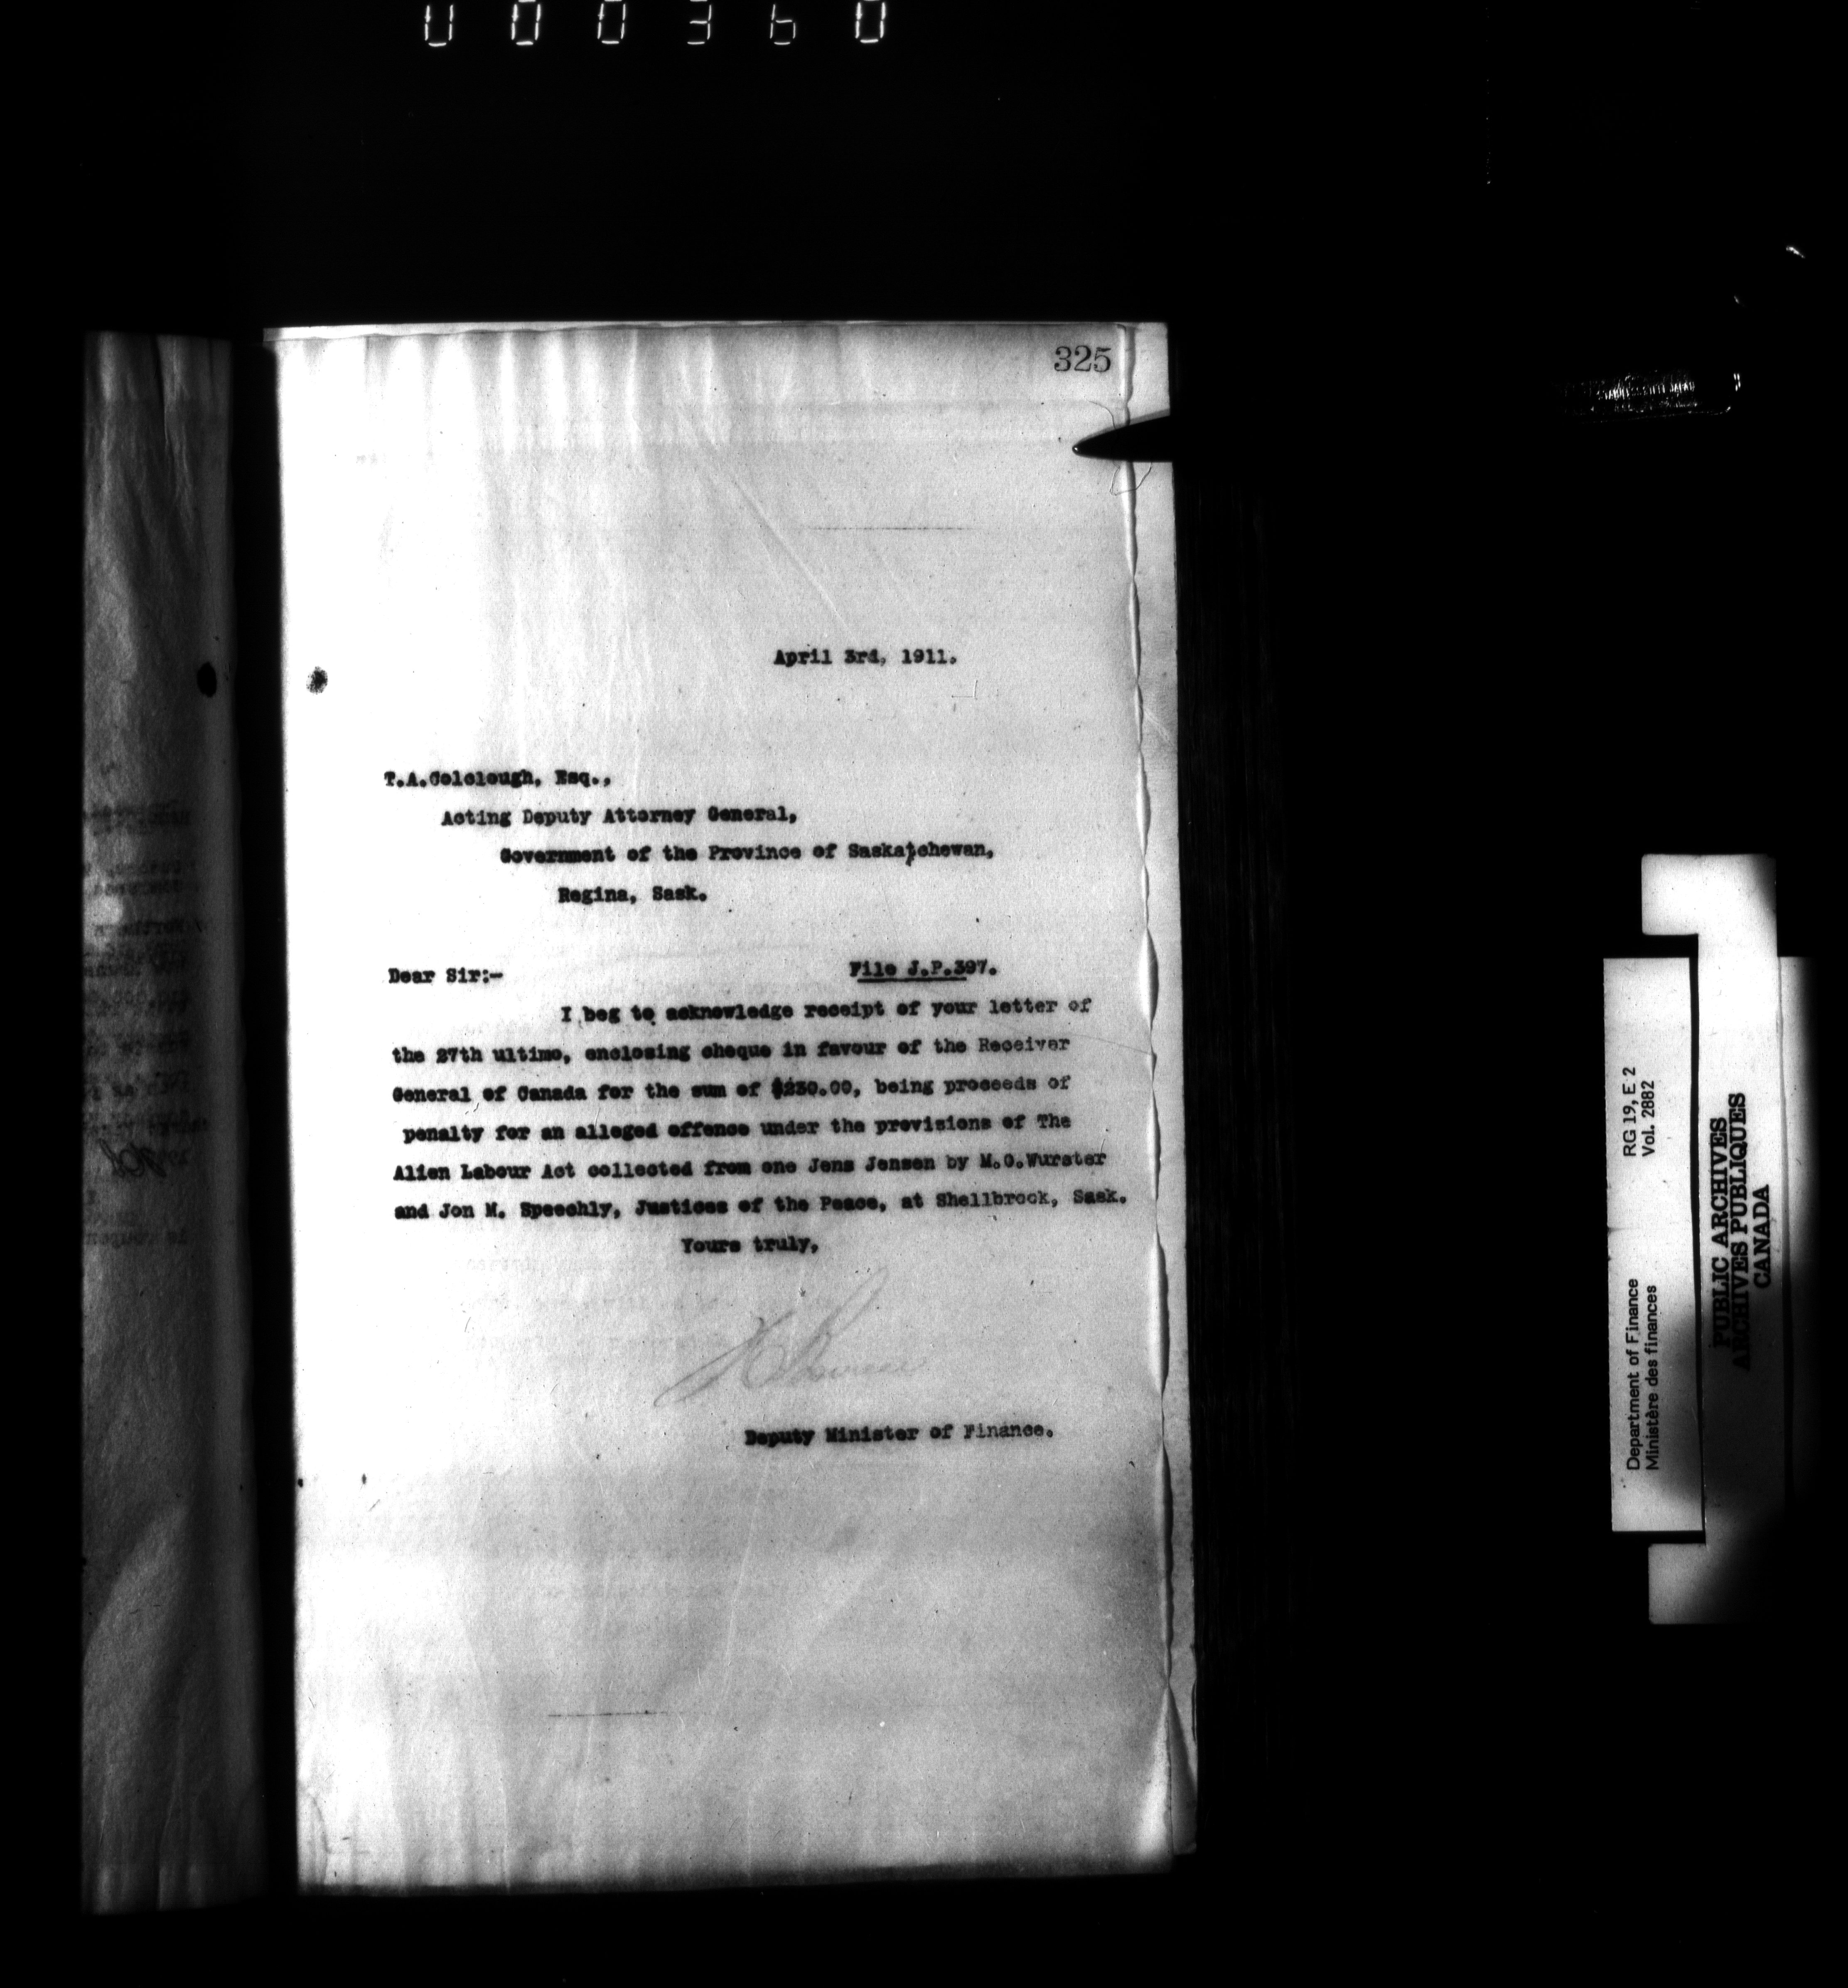 000360
325
April 3rd, 1911.
T.A.Colclough, Esq.,
Acting Deputy Attorney General,
Government of the Province of Saskatchewan,
Regina, Sask.
Dear Sir:- File J.P.397.
I beg to acknowledge receipt of your letter of
the 27th ultimo, enclosing cheque in favour of the Receiver
General of Canada for the sum of $230.00, being proceeds of
penalty for an alleged offence under the provisions of The
Alien Labour Act collected from one Jens Jensen by M.C.Wurster
and Jon M. Speechly, Justices of the Peace, at Shellbrook, Sask.
Yours truly,
Deputy Minister of Finance.
Department of Finance RG 19, E 2
Ministère des finances Vol. 2882
PUBLIC ARCHIVES
ARCHIVES PUBLIQUES
CANADA